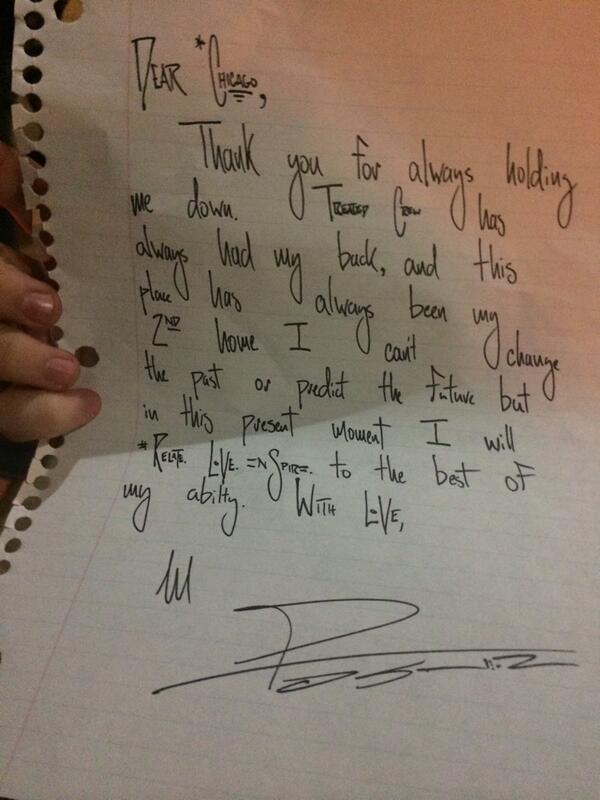 Dear *Chicago,
Thank you for always holding
me down. Treated Crew has
always had my back, and this
place has always been my
2nd home I can't change
the past or predict the future but
in this present moment I will
*Relate. Love. Inspire. to the best of
my abilty. With Love,